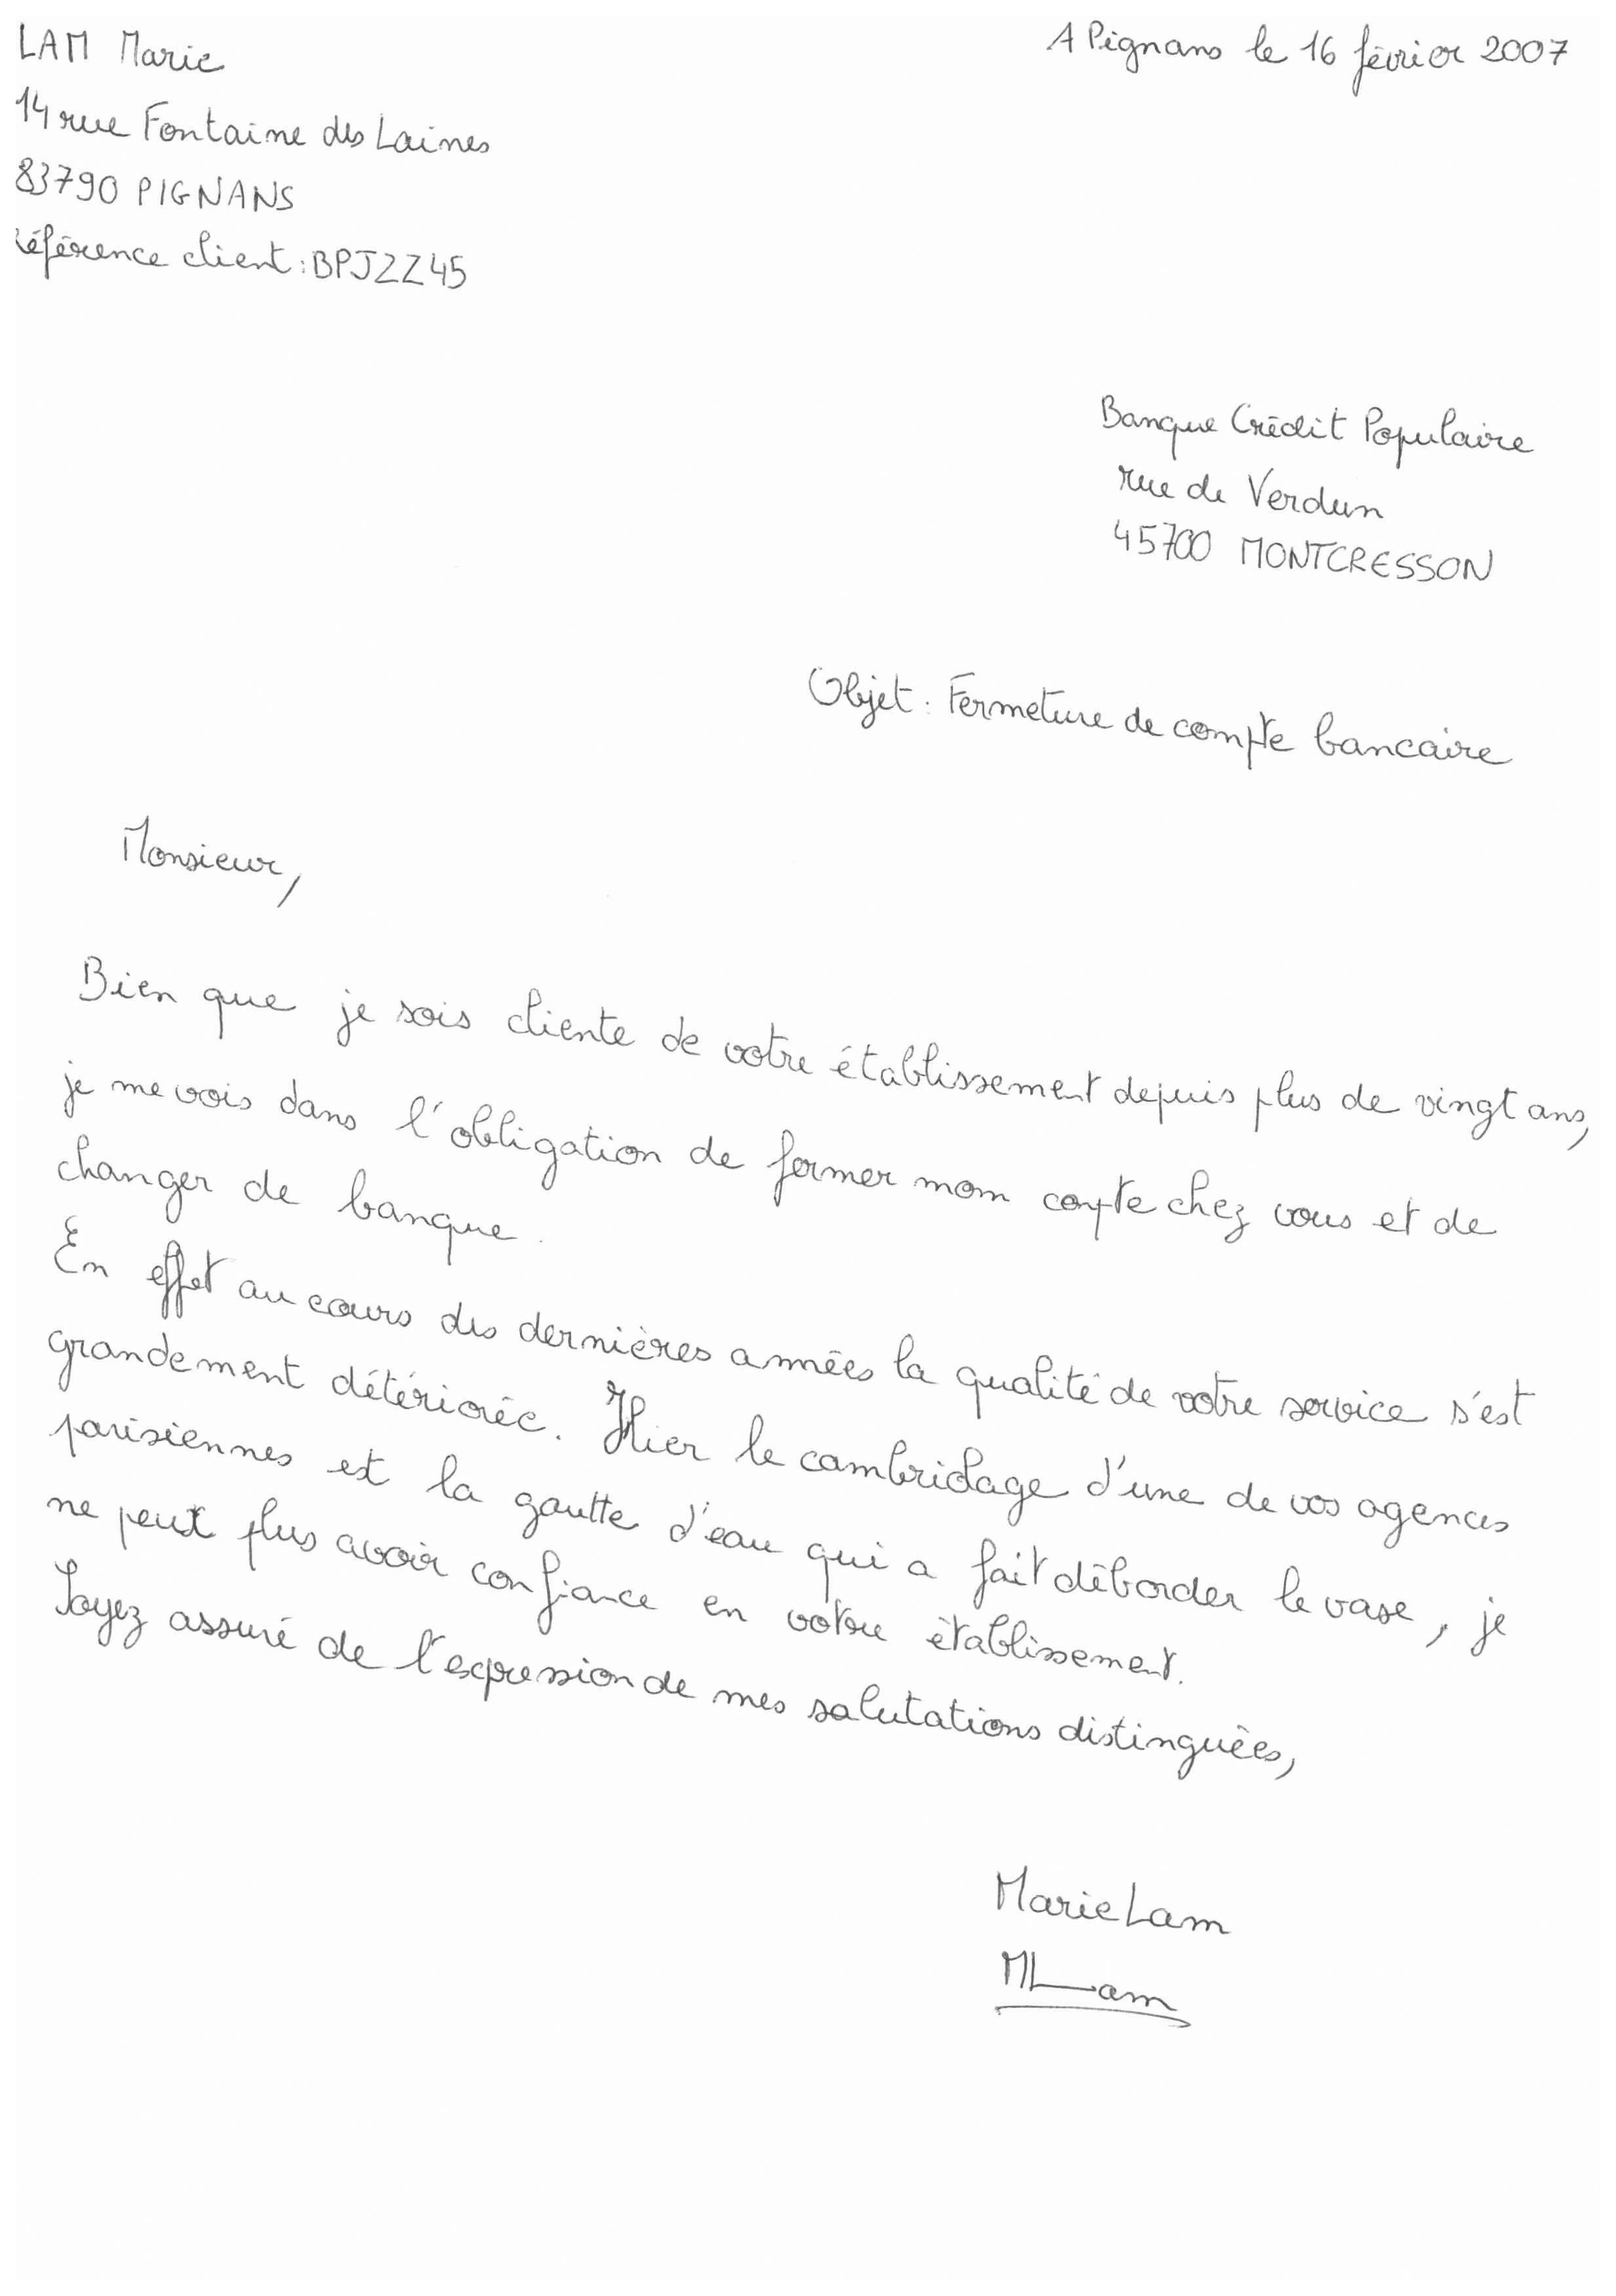 LAM Marie
A Pignans le 16 février 2007
14 rue Fontaine des Laines
83790 PIGNANS
référence client : BPJZZ45
Banque Crédit Populaire
rue de Verdun
45700 MONTCRESSON
Objet : Fermeture de compte bancaire
Monsieur,
Bien que je sois cliente de votre établissement depuis plus de vingt ans,
je me vois dans l'obligation de fermer mom compte chez vous et de
changer de banque.
En effet au cours des dernières années la qualité de votre service s'est
grandement détériorée. Hier le cambridage d'une de vos agences
parisiennes est la goutte d'eau qui a fait déborder le vase, je
ne peux plus avoir confiance en votre établissement.
Soyez assuré de l'expression de mes salutations distinguées,
Marie Lam
MLam